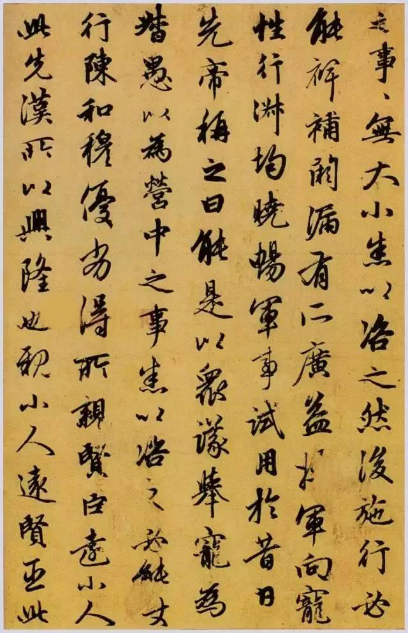 之事〻無大小悉以咨之然後施行必
能裨補闕漏有所廣益將軍向寵
性行淑均曉暢軍事試用於昔日
先帝稱之曰能是以眾議舉寵為
督愚以為營中之事悉以咨之必能使
行陳和穆優劣得所親賢臣遠小人
此先漢所以興隆也親小人遠賢臣此